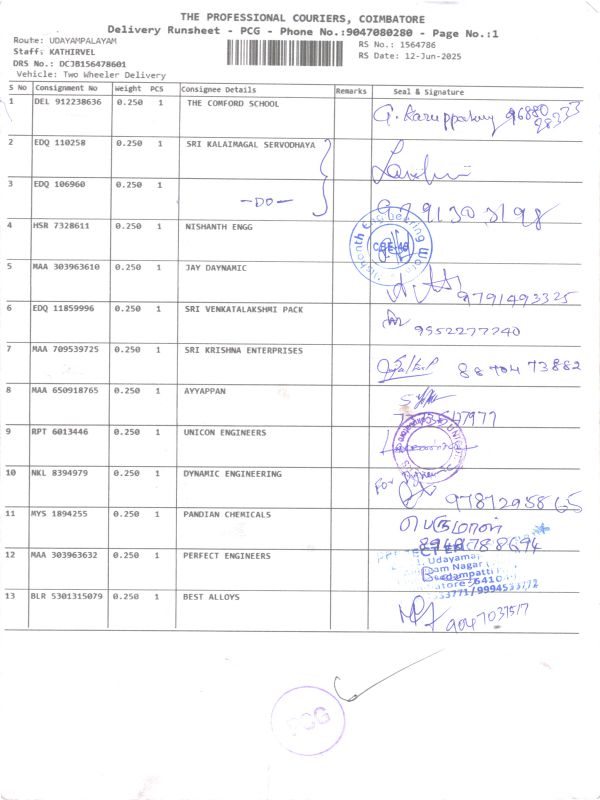 THE PROFESSIONAL COURIERS, COIMBATORE
Delivery Runsheet - PCG - Phone No.:9047080280 - Page No.:1
Route: UDAYAMPALAYAM
Staff: KATHIRVEL
DRS No.: DCJB156478601
Vehicle: Two Wheeler Delivery
RS No.: 1564786
RS Date: 12-Jun-2025
S No Consignment No Weight PCS Consignee Details Remarks Seal & Signature
1 DEL 912238636 0.250 1 THE COMFORD SCHOOL G. Karuppasamy
2 EDQ 110258 0.250 1 SRI KALAIMAGAL SERVODHAYA
3 EDQ 106960 0.250 1 -DO-
4 HSR 7328611 0.250 1 NISHANTH ENGG CBE-49
5 MAA 303963610 0.250 1 JAY DAYNAMIC 9791493325
6 EDQ 11859996 0.250 1 SRI VENKATALAKSHMI PACK 9952277240
7 MAA 709539725 0.250 1 SRI KRISHNA ENTERPRISES
8 MAA 650918765 0.250 1 AYYAPPAN
9 RPT 6013446 0.250 1 UNICON ENGINEERS
10 NKL 8394979 0.250 1 DYNAMIC ENGINEERING For
11 MYS 1894255 0.250 1 PANDIAN CHEMICALS பெருமாள்
12 MAA 303963632 0.250 1 PERFECT ENGINEERS
13 BLR 5301315079 0.250 1 BEST ALLOYS 9047037517
PCG